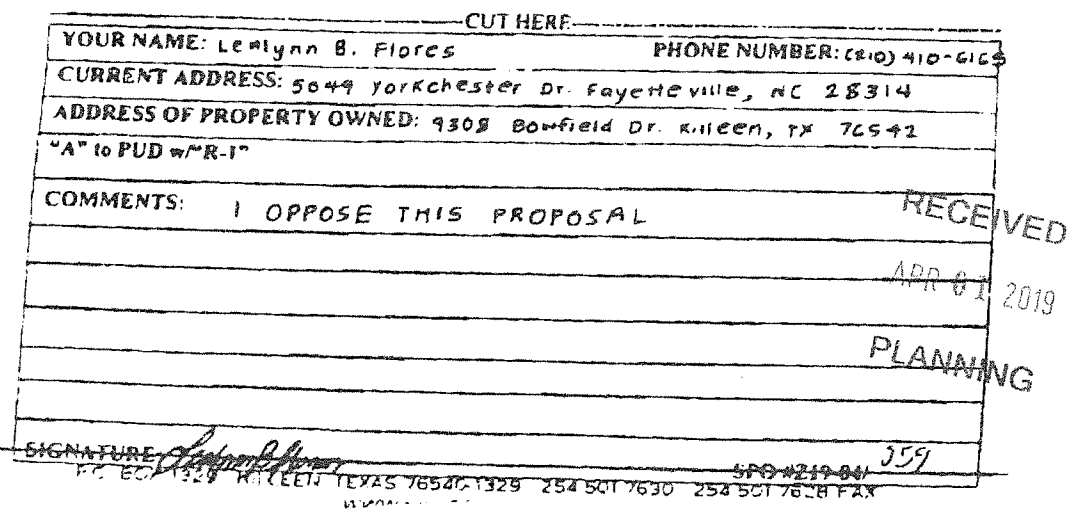 CUT HERE
YOUR NAME: Lealynn B. Flores PHONE NUMBER: (210) 410-6165
CURRENT ADDRESS: 5049 Yorkchester Dr. Fayetteville, NC 28314
ADDRESS OF PROPERTY OWNED: 9308 Bowfield Dr. Killeen, TX 76542
"A" to PUD w/"R-1"
COMMENTS: I OPPOSE THIS PROPOSAL
RECEIVED
APR 01 2019
PLANNING
SIGNATURE SPO #Z19-04/ 359
TEXAS 76540-1329 254 501 7630 254 501 7628 FAX